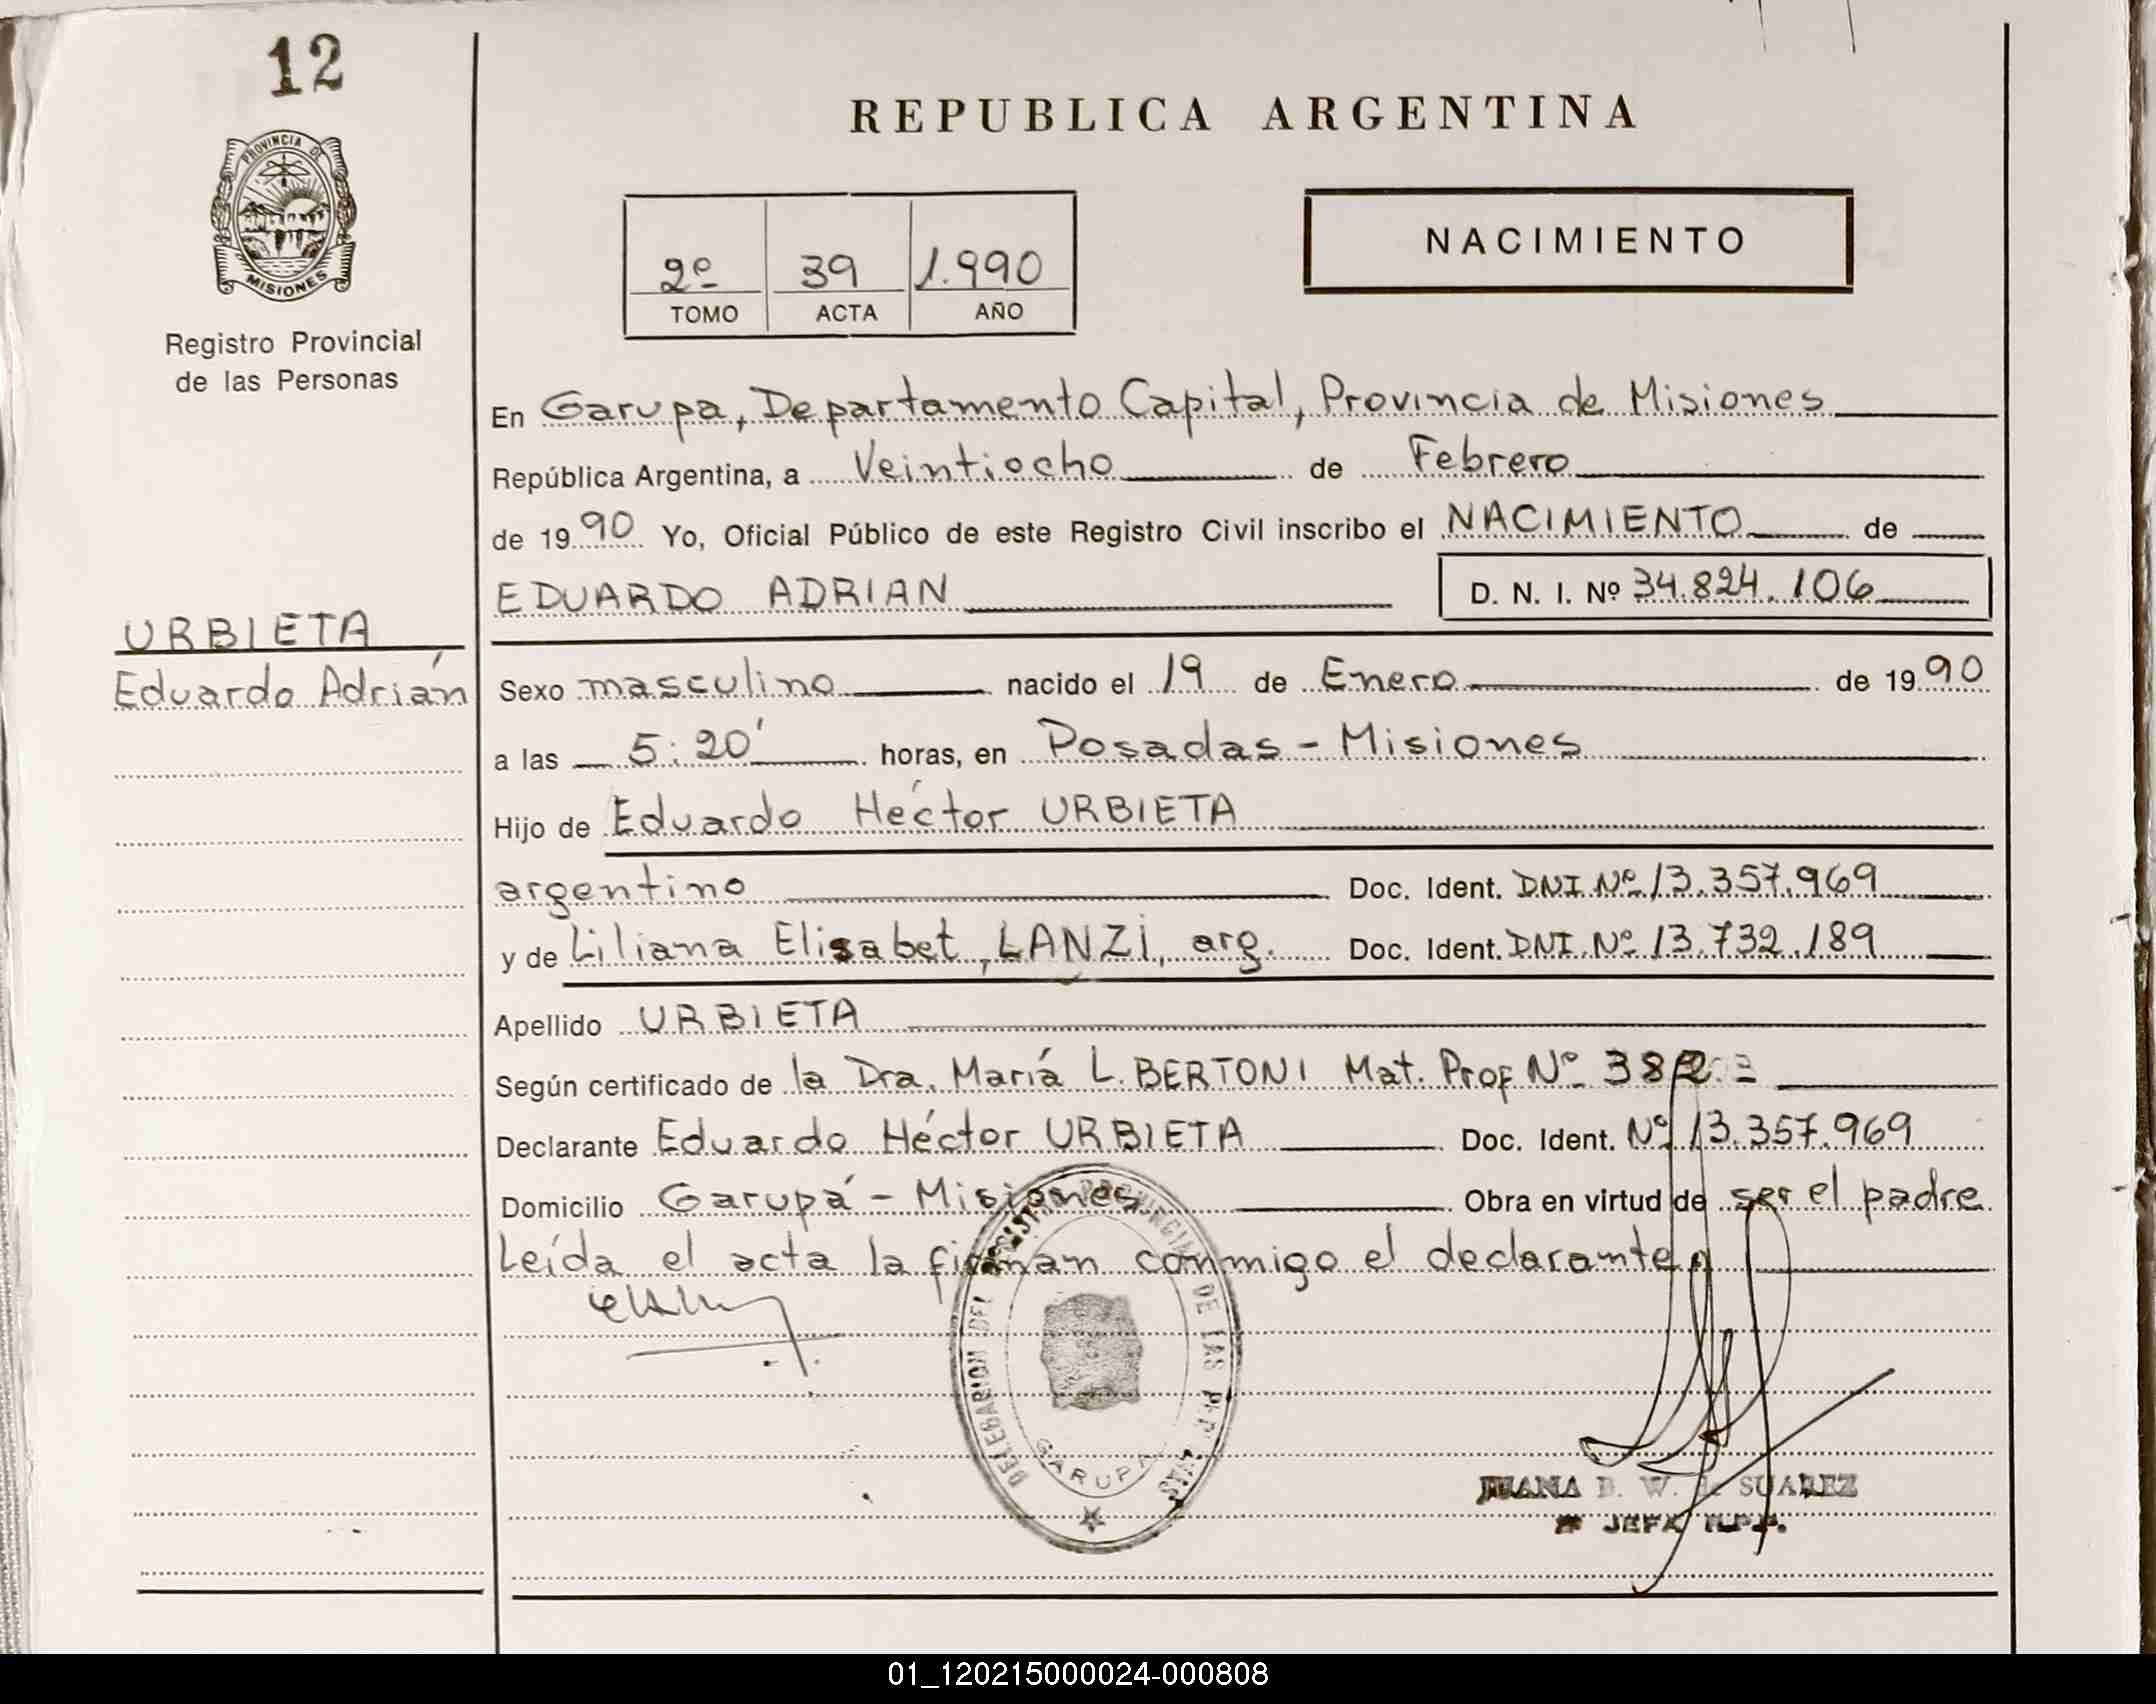 12
PROVINCIA DE
MISIONES
Registro Provincial
de las Personas
REPUBLICA ARGENTINA
2º 39 1.990
TOMO ACTA AÑO
NACIMIENTO
En Garupa, Departamento Capital, Provincia de Misiones
República Argentina, a Veintiocho de Febrero
de 1990 Yo, Oficial Público de este Registro Civil inscribo el NACIMIENTO de
EDUARDO ADRIAN D. N. I. Nº 34.824.106
URBIETA
Eduardo Adrián
Sexo masculino nacido el 19 de Enero de 1990
a las 5:20' horas, en Posadas - Misiones
Hijo de Eduardo Héctor URBIETA
argentino Doc. Ident. DNI Nº 13.357.969
y de Liliana Elisabet, LANZI, arg. Doc. Ident. DNI. Nº 13.732.189
Apellido URBIETA
Según certificado de la Dra. Mariá L. BERTONI Mat. Prof Nº
Declarante Eduardo Héctor URBIETA Doc. Ident. Nº 13.357.969
Domicilio Garupá - Misiones Obra en virtud de ser el padre
Leída el acta la firman conmigo el declarante
DELEGACION DEL REGISTRO PROVINCIAL DE LAS PERSONAS
GARUPA
JUANA D. W. SUAREZ
JEFA R.P.P.
01_120215000024-000808